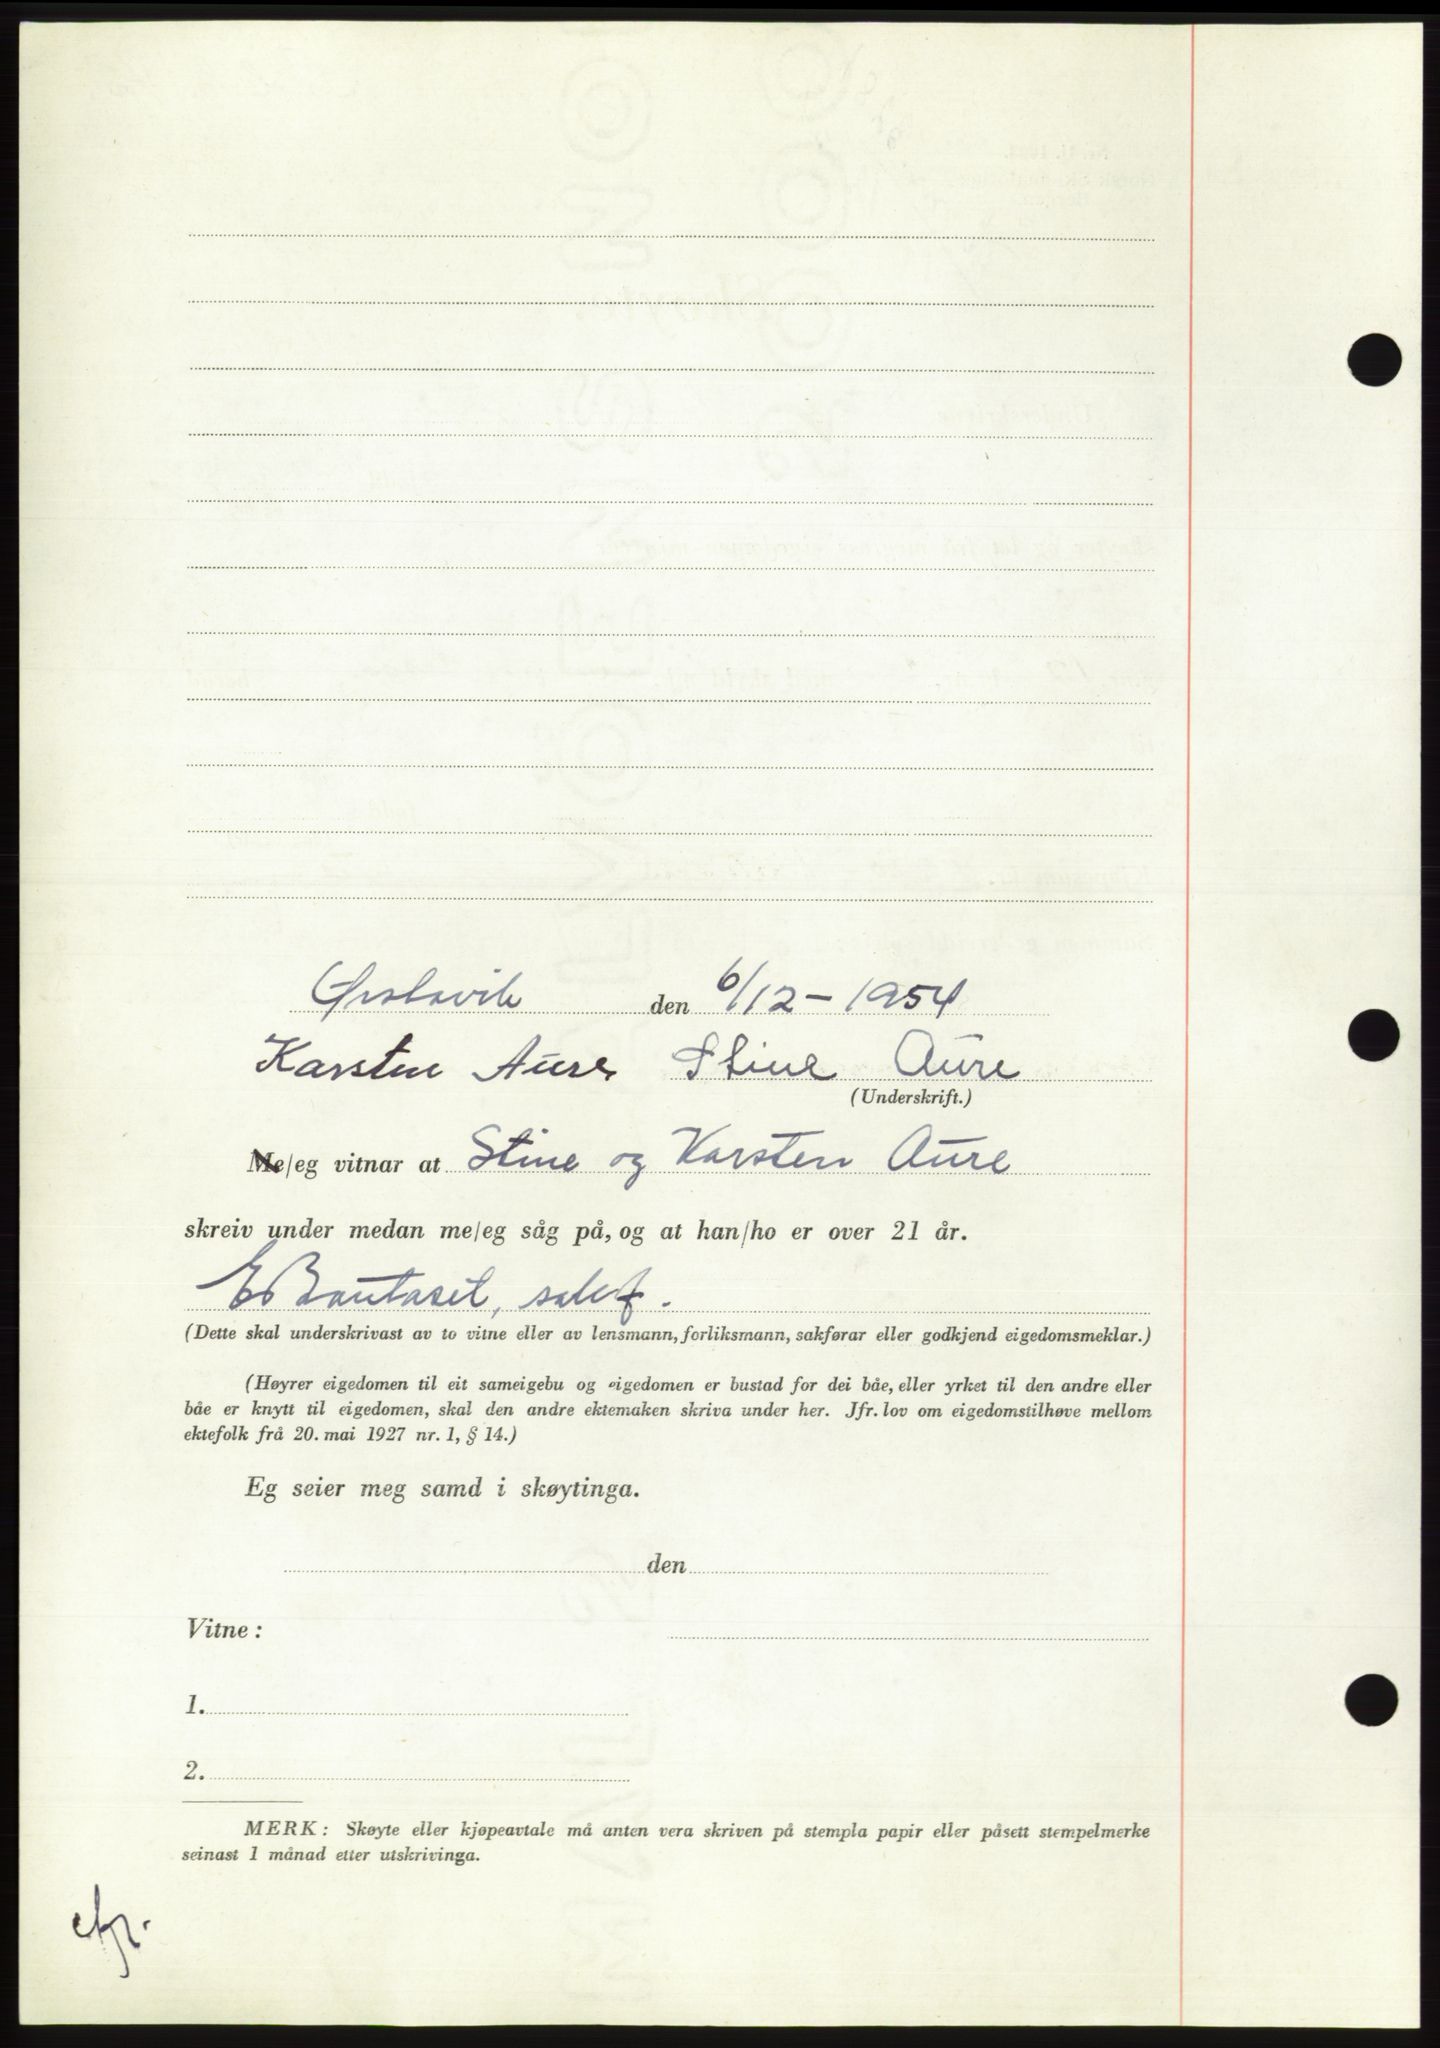 Ørstavik den 6/12 - 1954
Karsten Aure Stine Aure
(Underskrift.)
Me/eg vitnar at Stine og Karsten Aure
skreiv under medan me/eg såg på, og at han/ho er over 21 år.
sakf.
(Dette skal underskrivast av to vitne eller av lensmann, forliksmann, sakførar eller godkjend eigedomsmeklar.)
(Høyrer eigedomen til eit sameigebu og eigedomen er bustad for dei båe, eller yrket til den andre eller
båe er knytt til eigedomen, skal den andre ektemaken skriva under her. Jfr. lov om eigedomstilhøve mellom
ektefolk frå 20. mai 1927 nr. 1, § 14.)
Eg seier meg samd i skøytinga.
den
Vitne:
1.
2.
MERK: Skøyte eller kjøpeavtale må anten vera skriven på stempla papir eller påsett stempelmerke
seinast 1 månad etter utskrivinga.